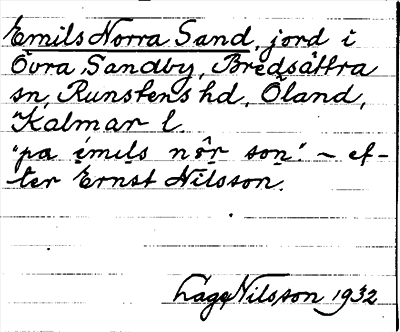 Emils Norra Sand, jord i
Övra Sandby, Bredsättra
sn, Runstens hd, Öland,
Kalmar l.
"pa emils nor son". – ef-
ter Ernst Nilsson.
Lage Nilsson 1932